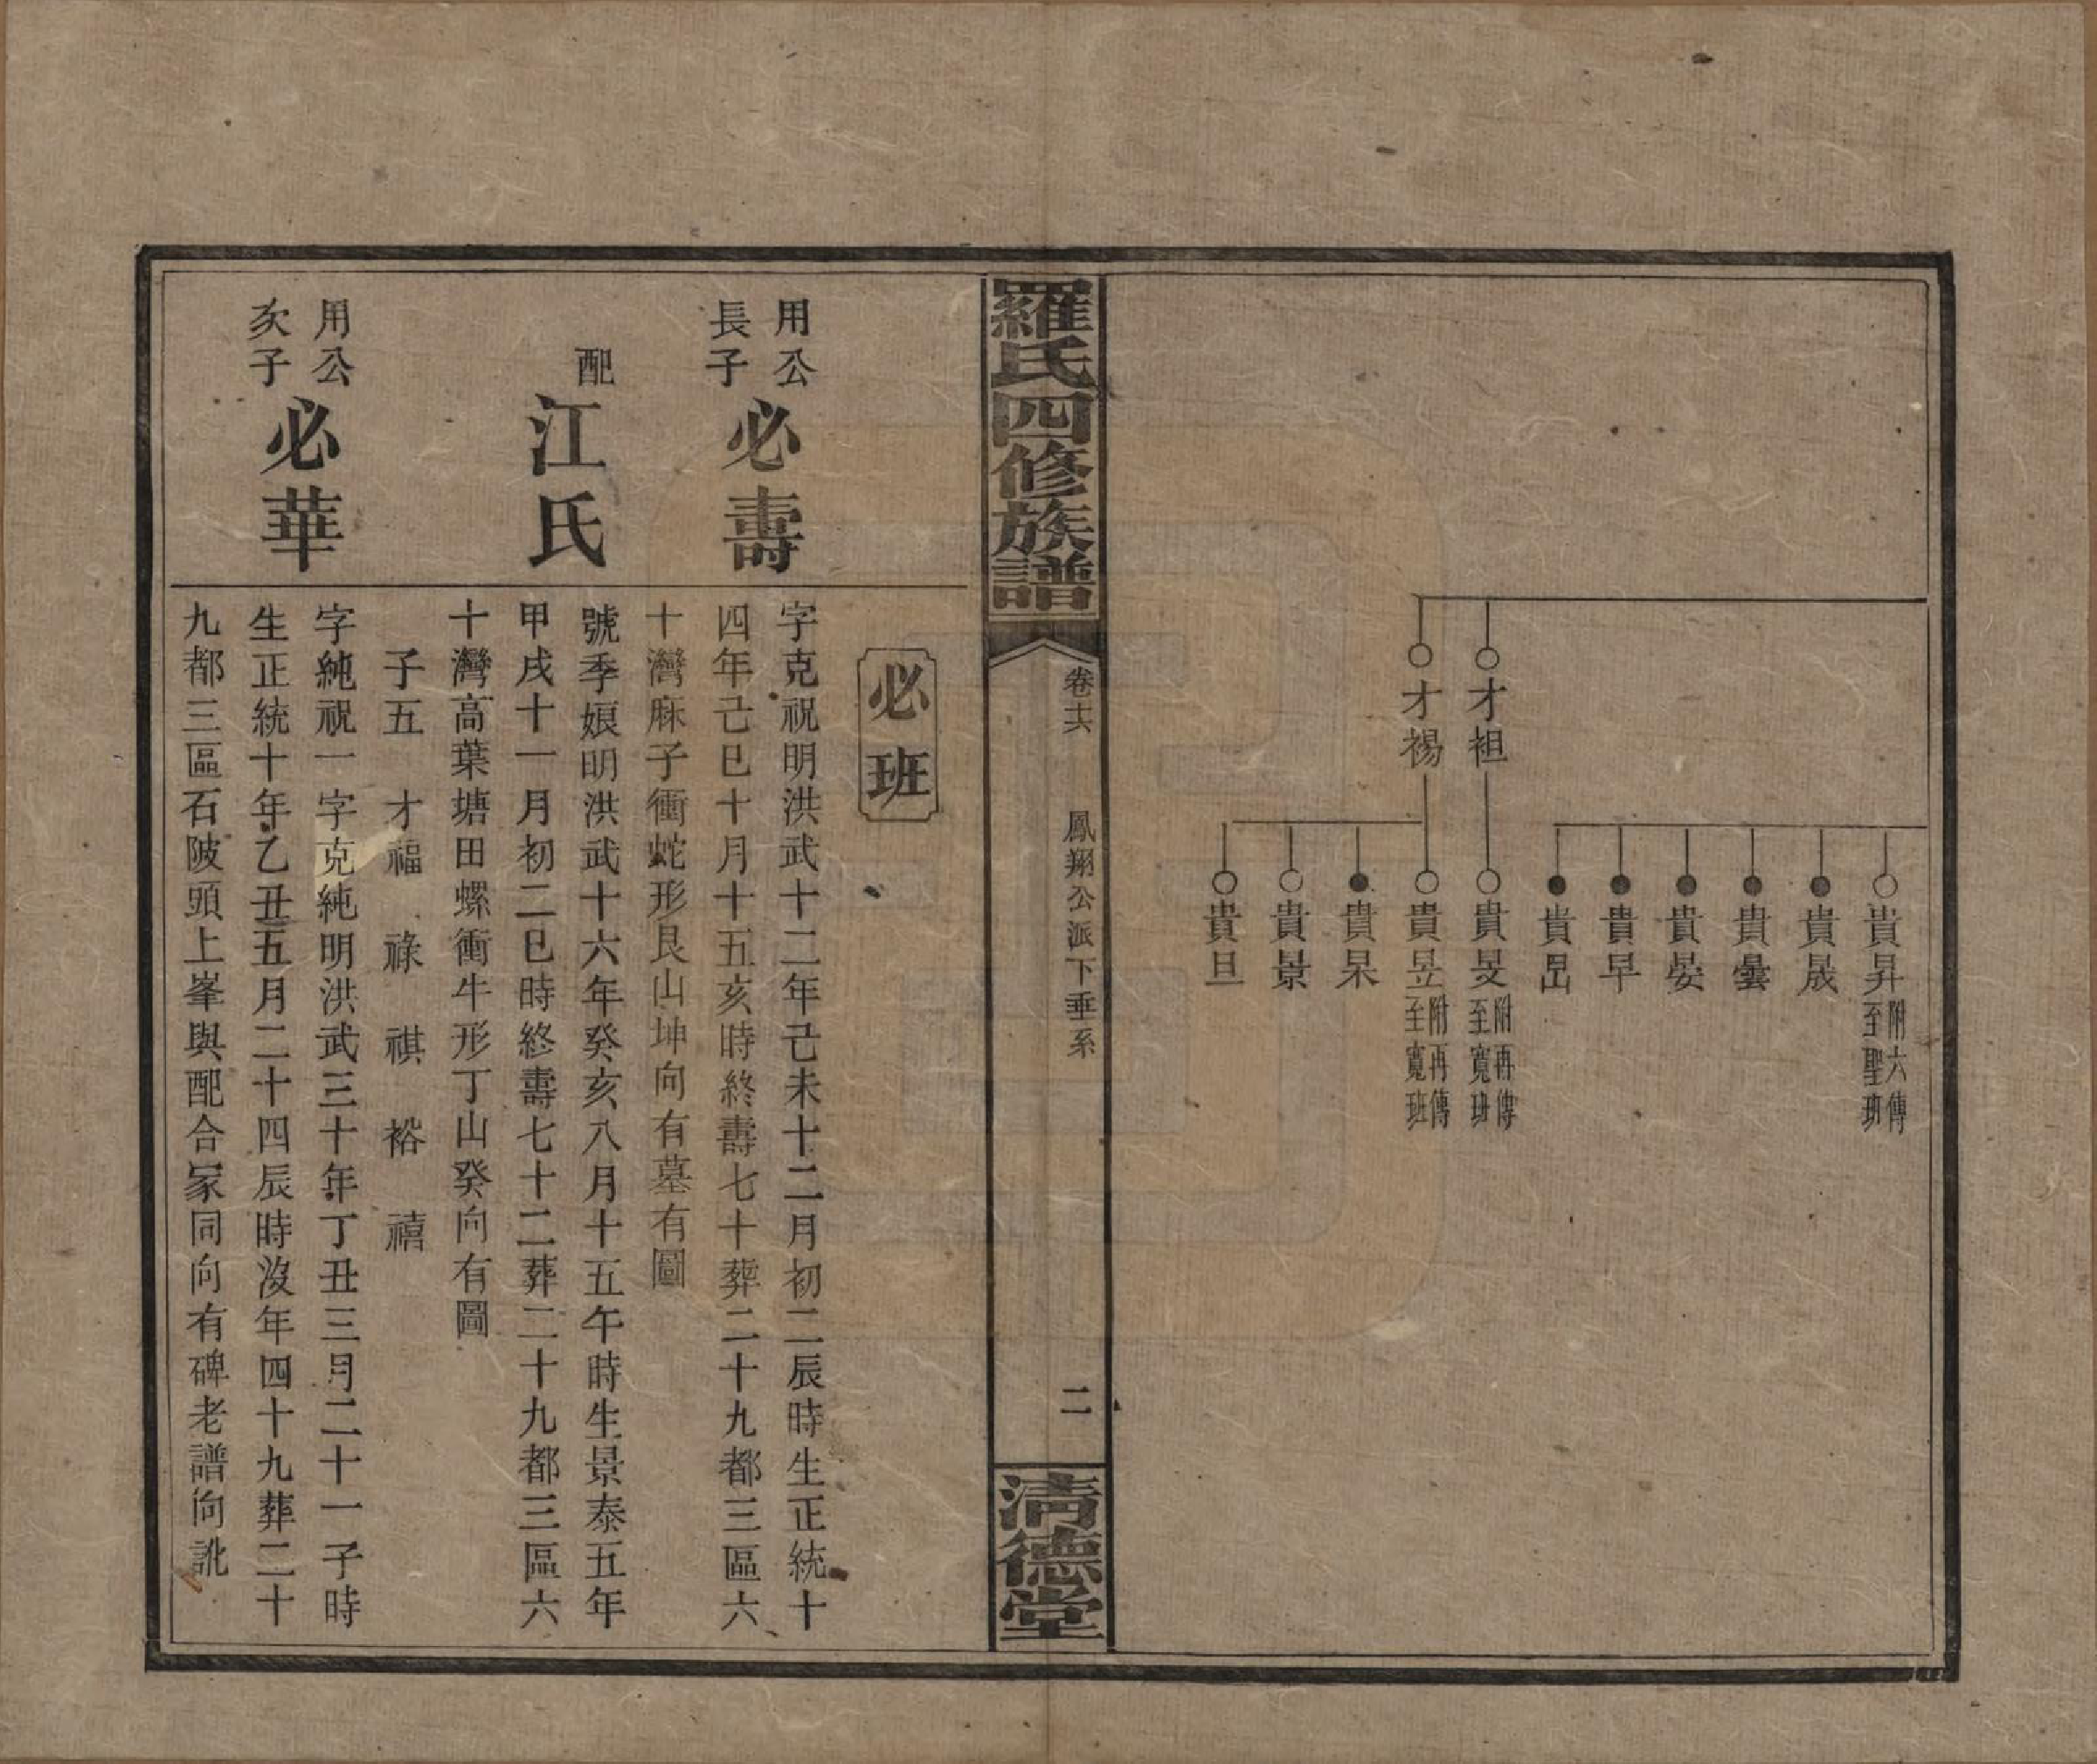 才袒
才裼
貴昇 附六傳至聖班
貴晟
貴曇
貴晏
貴早
貴昌
貴旻 附再傳至寬班
貴昱 附再傳至寬班
貴杲
貴景
貴旦
羅氏四修族譜
卷十六
鳳翔公派下垂系
二
清德堂
必班
用公長子必壽
字克祝明洪武十二年己未十二月初二辰時生正統十
四年己巳十月十五亥時終壽七十葬二十九都三區六
十灣麻子衝蛇形艮山坤向有墓有圖
配江氏
號季娘明洪武十六年癸亥八月十五午時生景泰五年
甲戌十一月初二巳時終壽七十二葬二十九都三區六
十灣高葉塘田螺衝牛形丁山癸向有圖
子五 才福 祿 祺 裕 禧
用公次子必華
字純祝一字克純明洪武三十年丁丑三月二十一子時
生正統十年乙丑五月二十四辰時沒年四十九葬二十
九都三區石陂頭上峯與配合冢同向有碑老譜向訛